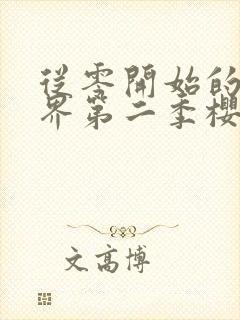 從零開始的
界第二季櫻
文高博